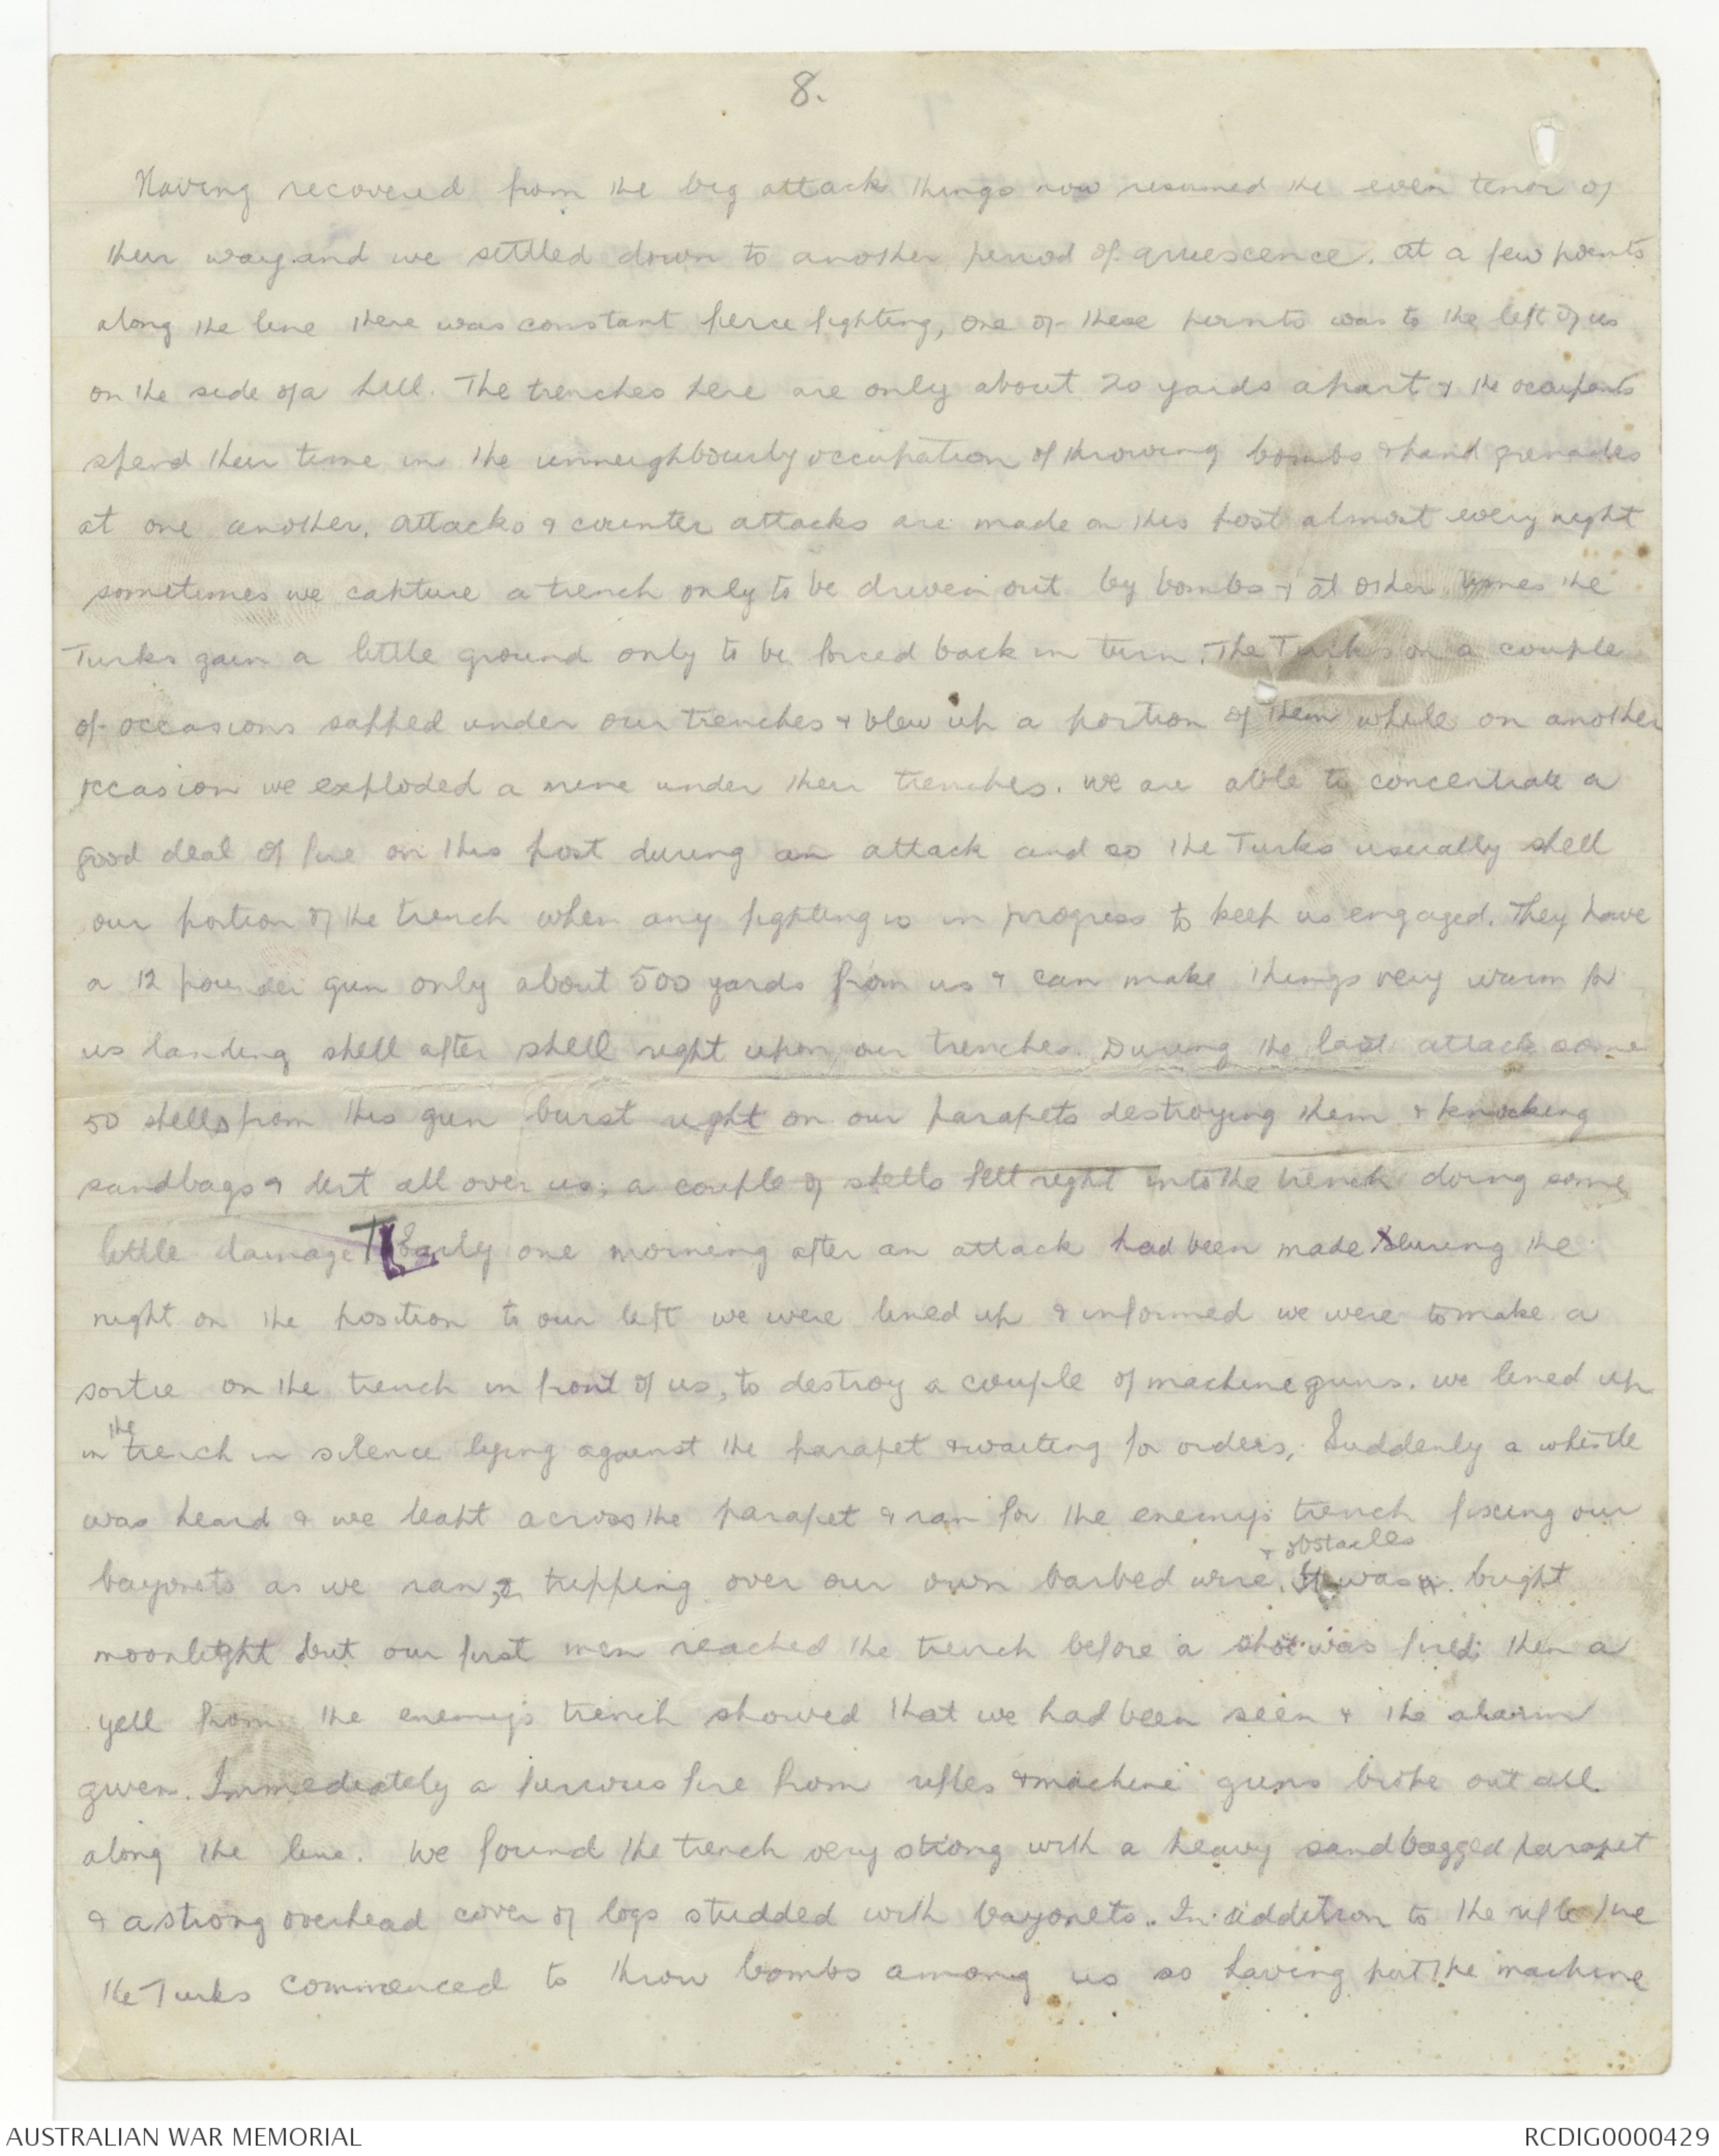 8.
Having recovered from the big attack things now resumed the even tenor of
their way and we settled down to another period of quiescence. At a few points
along the line there was constant fierce fighting, one of these points was to the left of us
on the side of a hill. The trenches here are only about 20 yards apart & the occupants
spend their time in the unneighbourly occupation of throwing bombs & hand grenades
at one another. Attacks & counter attacks are made on this post almost every night
sometimes we capture a trench only to be driven out by bombs & at other times the
Turks gain a little ground only to be forced back in turn. The Turks on a couple
of occasions sapped under our trenches & blew up a portion of them while on another
occasion we exploded a mine under their trenches. We are able to concentrate a
good deal of fire on this post during an attack and so the Turks usually shell
our portion of the trench when any fighting is in progress to keep us engaged. They have
a 12 pounder gun only about 500 yards from us & can make things very warm for
us landing shell after shell right upon our trenches. During the last attack some
50 shells from this gun burst right on our parapets destroying them & knocking
sandbags & dirt all over us; a couple of shells fell right into the trench doing some
little damage Early one morning after an attack had been made during the
night on the position to our left we were lined up & informed we were to make a
sortie on the trench in front of us, to destroy a couple of machine guns. We lined up
in the trench in silence lying against the parapet & waiting for orders, Suddenly a whistle
was heard & we leapt across the parapet & ran for the enemy's trench fixing our
bayonets as we ran, & tripping over our own barbed wire & obstacles. It was a bright
moonlight but our first men reached the trench before a shot was fired; then a
yell from the enemy's trench showed that we had been seen & the alarm
given. Immediately a furious fire from rifles & machine guns broke out all
along the line. We found the trench very strong with a heavy sandbagged parapet
& a strong overhead cover of logs studded with bayonets. In addition to the rifle fire
the Turks commenced to throw bombs among us so having put the machine
AUSTRALIAN WAR MEMORIAL
RCDIG0000429